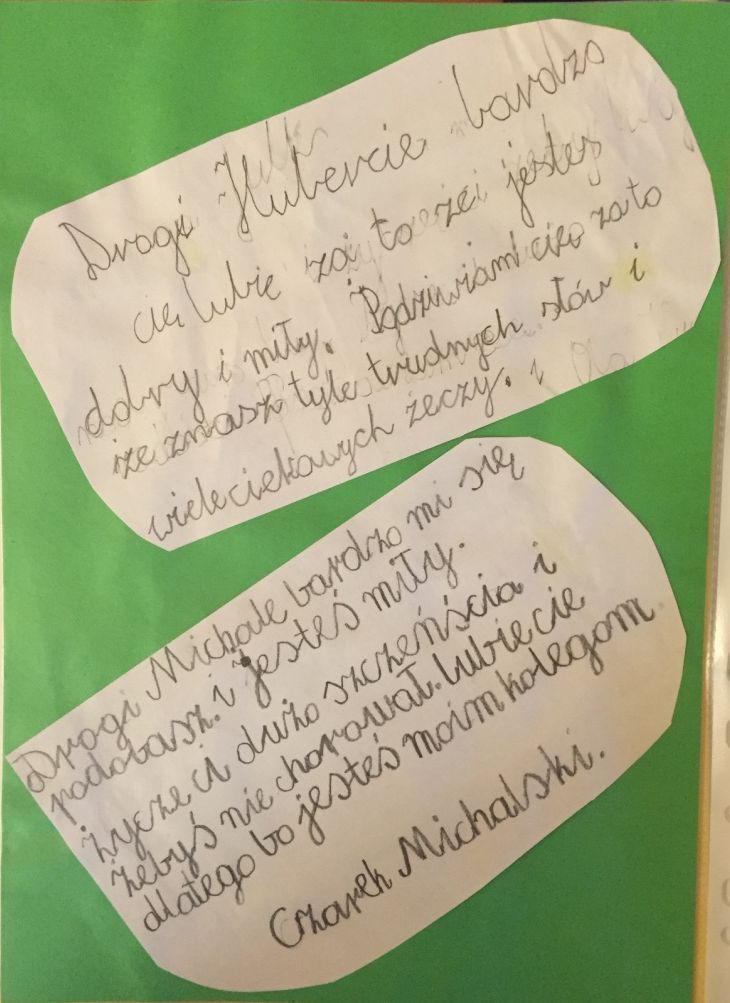 Drogi Hubercie bardzo
cię lubię za to że jesteś
dobry i miły. Podziwiam cię za to
że znasz tyle trudnych słów i
wiele ciekowych żeczy.
Drogi Michale bardzo mi się
podobasz. i jesteś miły.
życze ci dużo szczeńścia i
żebyś nie chorował. lubię cie
dlatego bo jesteś moim kolegom
Czarek Michalski.